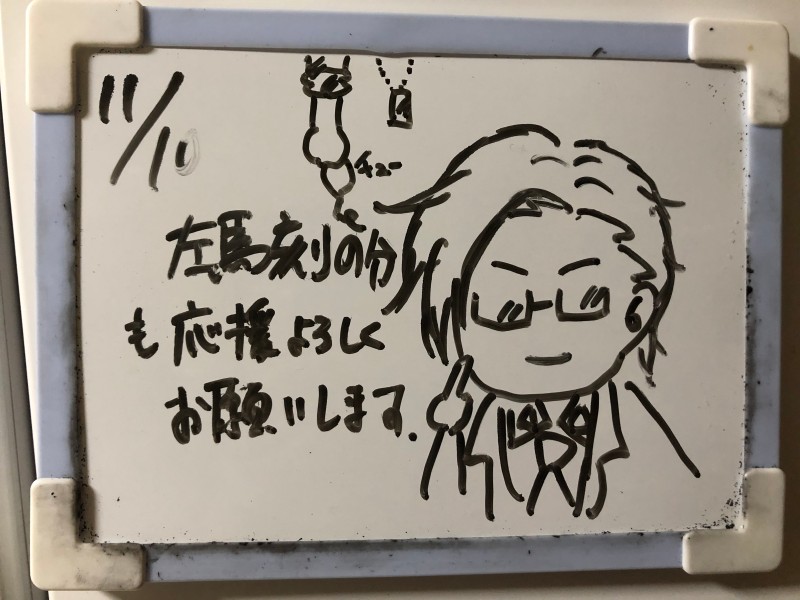 11/10
チュー
左馬刻の分
も応援よろしく
お願いします.